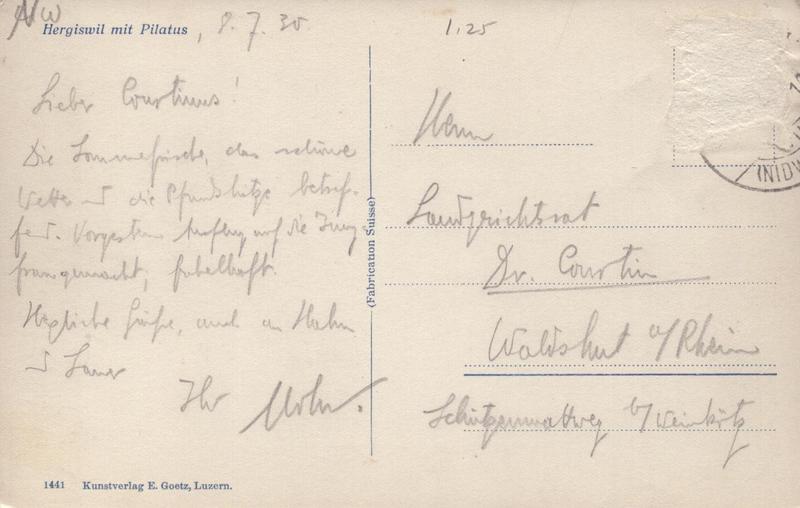 NW
Hergiswil mit Pilatus, 8.7.30
1.25
Lieber Courtinus!
Die Sommerfrische, das schöne
Wetter und die Pfundshitze betref-
fend. Vorgestern Ausflug auf die Jung-
frau gemacht, fabelhaft.
Herzliche Grüße, auch an Hahn
Ihr
(Fabrication Suisse)
Herrn
Landgerichtsrat
Dr. Courtin
Waldshut a/Rhein
b/
1441 Kunstverlag E. Goetz, Luzern.